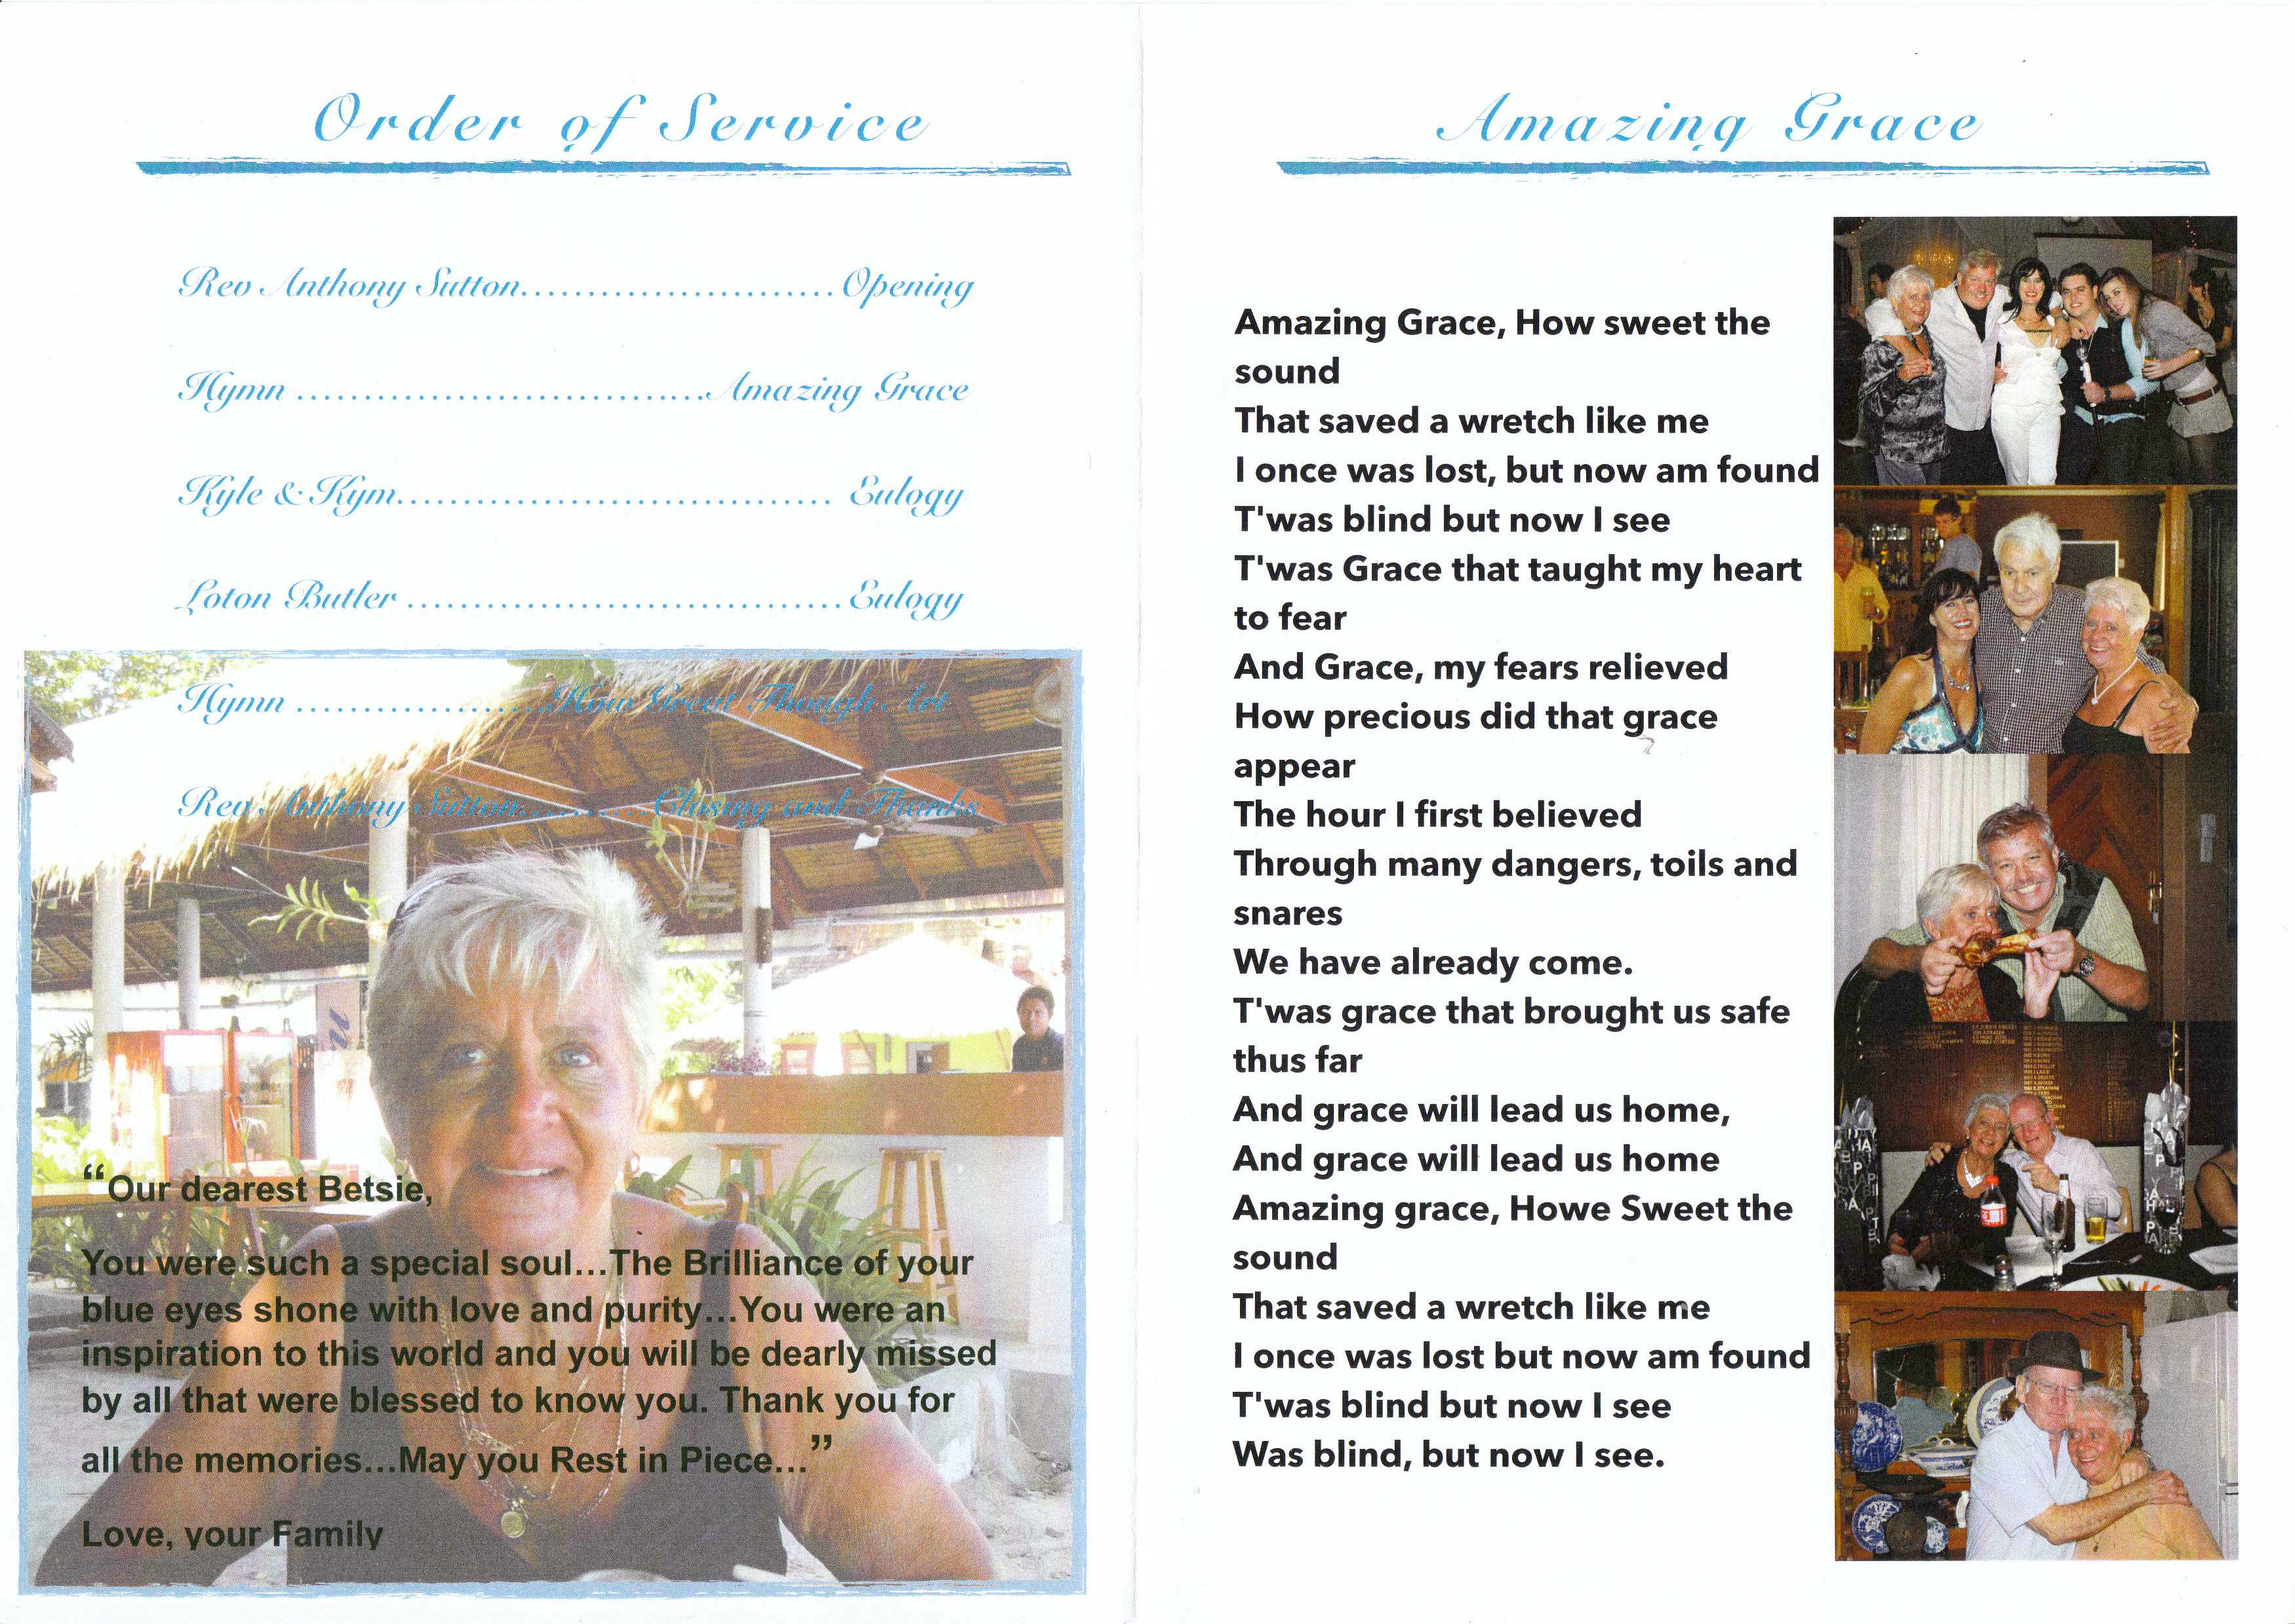 Order of Service
Rev Anthony Sutton........................Opening
Hymn ...............................Amazing Grace
Kyle & Kym................................. Eulogy
Loton Butler .................................Eulogy
Hymn ...................How Great Though Art
Rev Anthony Sutton..........Closing and Thanks
“Our dearest Betsie,
You were such a special soul...The Brilliance of your
blue eyes shone with love and purity...You were an
inspiration to this world and you will be dearly missed
by all that were blessed to know you. Thank you for
all the memories...May you Rest in Piece...”
Love, your Family
Amazing Grace
Amazing Grace, How sweet the
sound
That saved a wretch like me
I once was lost, but now am found
T'was blind but now I see
T'was Grace that taught my heart
to fear
And Grace, my fears relieved
How precious did that grace
appear
The hour I first believed
Through many dangers, toils and
snares
We have already come.
T'was grace that brought us safe
thus far
And grace will lead us home,
And grace will lead us home
Amazing grace, Howe Sweet the
sound
That saved a wretch like me
I once was lost but now am found
T'was blind but now I see
Was blind, but now I see.